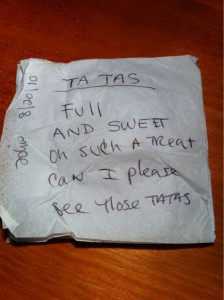 TA TAS
Full
AND SWEET
Oh such A TReat
CAN I please
see those TATAS
8/20/10